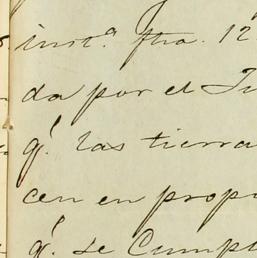 inst.ª ftra. 12
da por el Ju
q.ᵉ las tierra
cen en propi
q.ᵉ se Cumpl